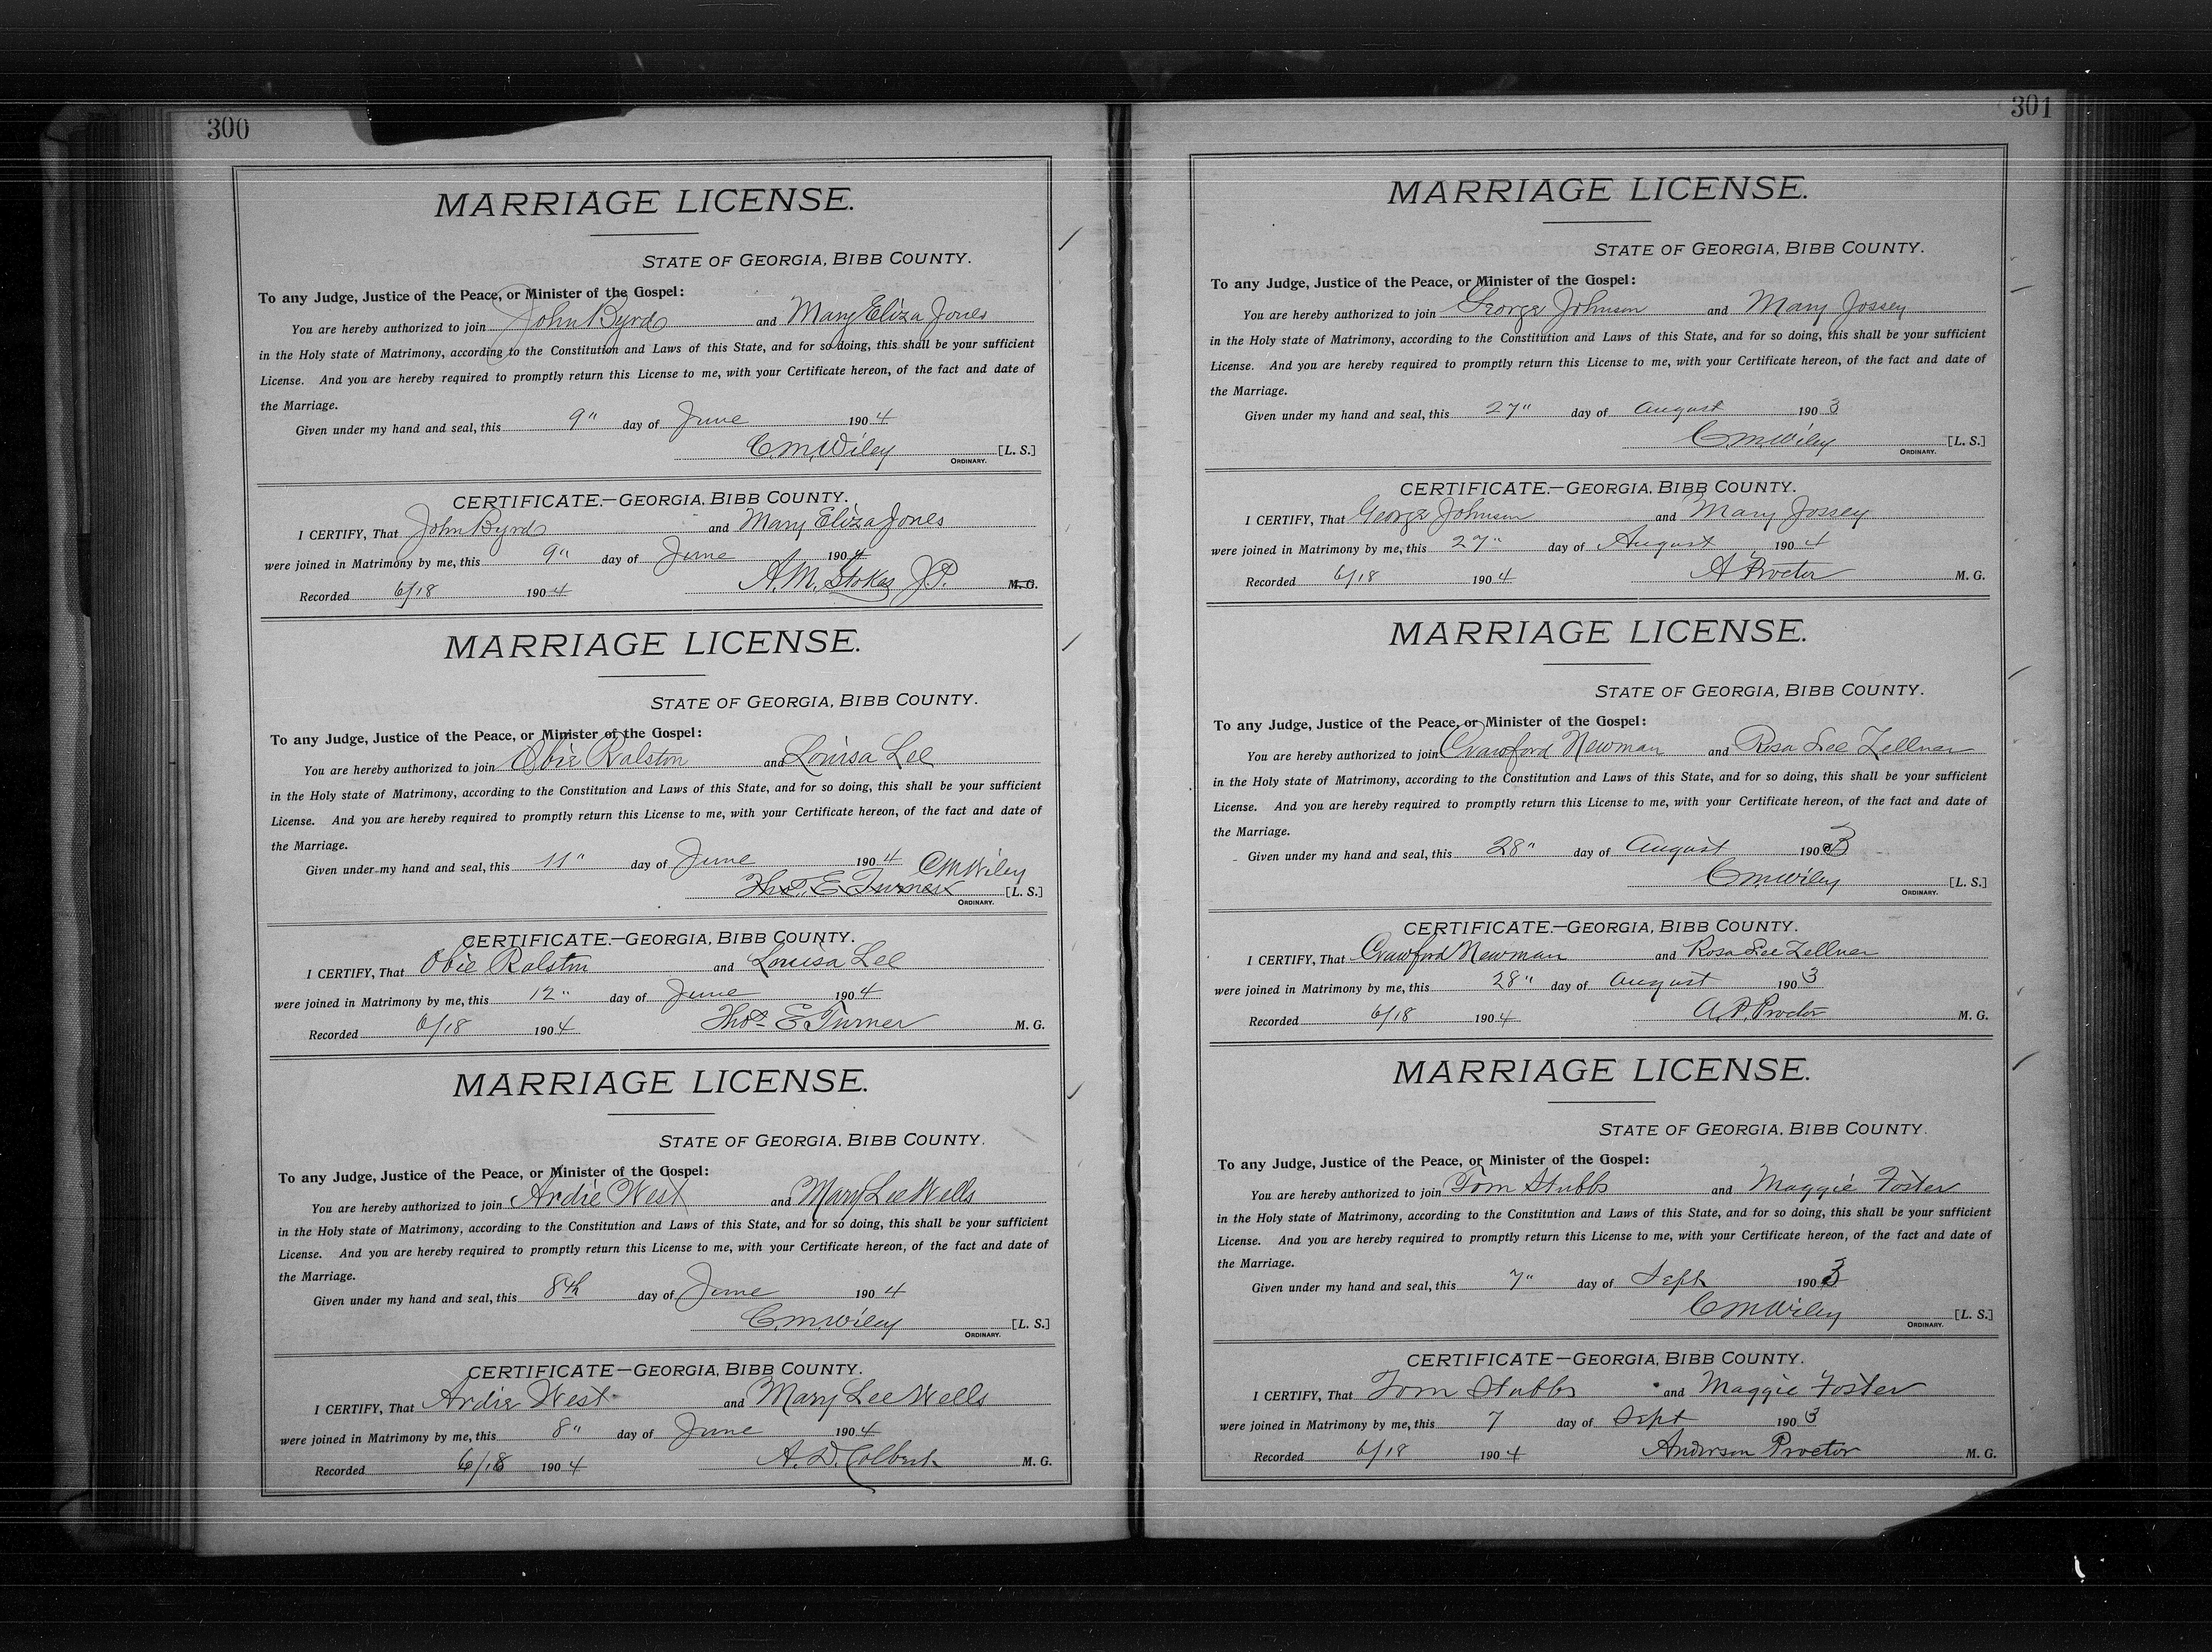 300
MARRIAGE LICENSE.
STATE OF GEORGIA, BIBB COUNTY.
To any Judge, Justice of the Peace, or Minister of the Gospel:
You are hereby authorized to join John Byrds and Mary Eliza Jones
in the Holy state of Matrimony, according to the Constitution and Laws of this State, and for so doing, this shall be your sufficient
License. And you are hereby required to promptly return this License to me, with your Certificate hereon, of the fact and date of
the Marriage.
Given under my hand and seal, this 9" day of June 1904
C.M. Wiley [L. S.]
ORDINARY.
CERTIFICATE.—GEORGIA, BIBB COUNTY.
I CERTIFY, That John Byrds and Mary Eliza Jones
were joined in Matrimony by me, this 9" day of June 1904
Recorded 6/18 1904 A.M. Stokes J.P. M. G.
MARRIAGE LICENSE.
STATE OF GEORGIA, BIBB COUNTY.
To any Judge, Justice of the Peace, or Minister of the Gospel:
You are hereby authorized to join Obie Ralston and Louisa Lee
in the Holy state of Matrimony, according to the Constitution and Laws of this State, and for so doing, this shall be your sufficient
License. And you are hereby required to promptly return this License to me, with your Certificate hereon, of the fact and date of
the Marriage.
Given under my hand and seal, this 11" day of June 1904 CM Wiley
Thos. E. Turner [L. S.]
ORDINARY.
CERTIFICATE.—GEORGIA, BIBB COUNTY.
I CERTIFY, That Obie Ralston and Louisa Lee
were joined in Matrimony by me, this 12" day of June 1904
Recorded 6/18 1904 Thos E Turner M. G.
MARRIAGE LICENSE.
STATE OF GEORGIA, BIBB COUNTY.
To any Judge, Justice of the Peace, or Minister of the Gospel:
You are hereby authorized to join Ardie West and Mary Lee Wells
in the Holy state of Matrimony, according to the Constitution and Laws of this State, and for so doing, this shall be your sufficient
License. And you are hereby required to promptly return this License to me, with your Certificate hereon, of the fact and date of
the Marriage.
Given under my hand and seal, this 8th day of June 1904
C.M. Wiley [L. S.]
ORDINARY.
CERTIFICATE—GEORGIA, BIBB COUNTY.
I CERTIFY, That Ardie West and Mary Lee Wells
were joined in Matrimony by me, this 8" day of June 1904
Recorded 6/18 1904 A. D. Colbert M. G.
301
MARRIAGE LICENSE.
STATE OF GEORGIA, BIBB COUNTY.
To any Judge, Justice of the Peace, or Minister of the Gospel:
You are hereby authorized to join George Johnson and Mary Jossey
in the Holy state of Matrimony, according to the Constitution and Laws of this State, and for so doing, this shall be your sufficient
License. And you are hereby required to promptly return this License to me, with your Certificate hereon, of the fact and date of
the Marriage.
Given under my hand and seal, this 27" day of August 1903
C.M. Wiley [L. S.]
ORDINARY.
CERTIFICATE.—GEORGIA, BIBB COUNTY.
I CERTIFY, That George Johnson and Mary Jossey
were joined in Matrimony by me, this 27" day of August 1904
Recorded 6/18 1904 A Proctor M. G.
MARRIAGE LICENSE.
STATE OF GEORGIA, BIBB COUNTY.
To any Judge, Justice of the Peace, or Minister of the Gospel:
You are hereby authorized to join Crawford Newman and Rosa Lee Zellner
in the Holy state of Matrimony, according to the Constitution and Laws of this State, and for so doing, this shall be your sufficient
License. And you are hereby required to promptly return this License to me, with your Certificate hereon, of the fact and date of
the Marriage.
Given under my hand and seal, this 28" day of August 1903
C.M. Wiley [L. S.]
ORDINARY.
CERTIFICATE.—GEORGIA, BIBB COUNTY.
I CERTIFY, That Crawford Newman and Rosa Lee Zellner
were joined in Matrimony by me, this 28" day of August 1903
Recorded 6/18 1904 A. P. Proctor M. G.
MARRIAGE LICENSE.
STATE OF GEORGIA, BIBB COUNTY.
To any Judge, Justice of the Peace, or Minister of the Gospel:
You are hereby authorized to join Tom Stubbs and Maggie Foster
in the Holy state of Matrimony, according to the Constitution and Laws of this State, and for so doing, this shall be your sufficient
License. And you are hereby required to promptly return this License to me, with your Certificate hereon, of the fact and date of
the Marriage.
Given under my hand and seal, this 7" day of Sept 1903
C M Wiley [L. S.]
ORDINARY.
CERTIFICATE—GEORGIA, BIBB COUNTY.
I CERTIFY, That Tom Stubbs and Maggie Foster
were joined in Matrimony by me, this 7 day of Sept 1903
Recorded 6/18 1904 Anderson Proctor M. G.